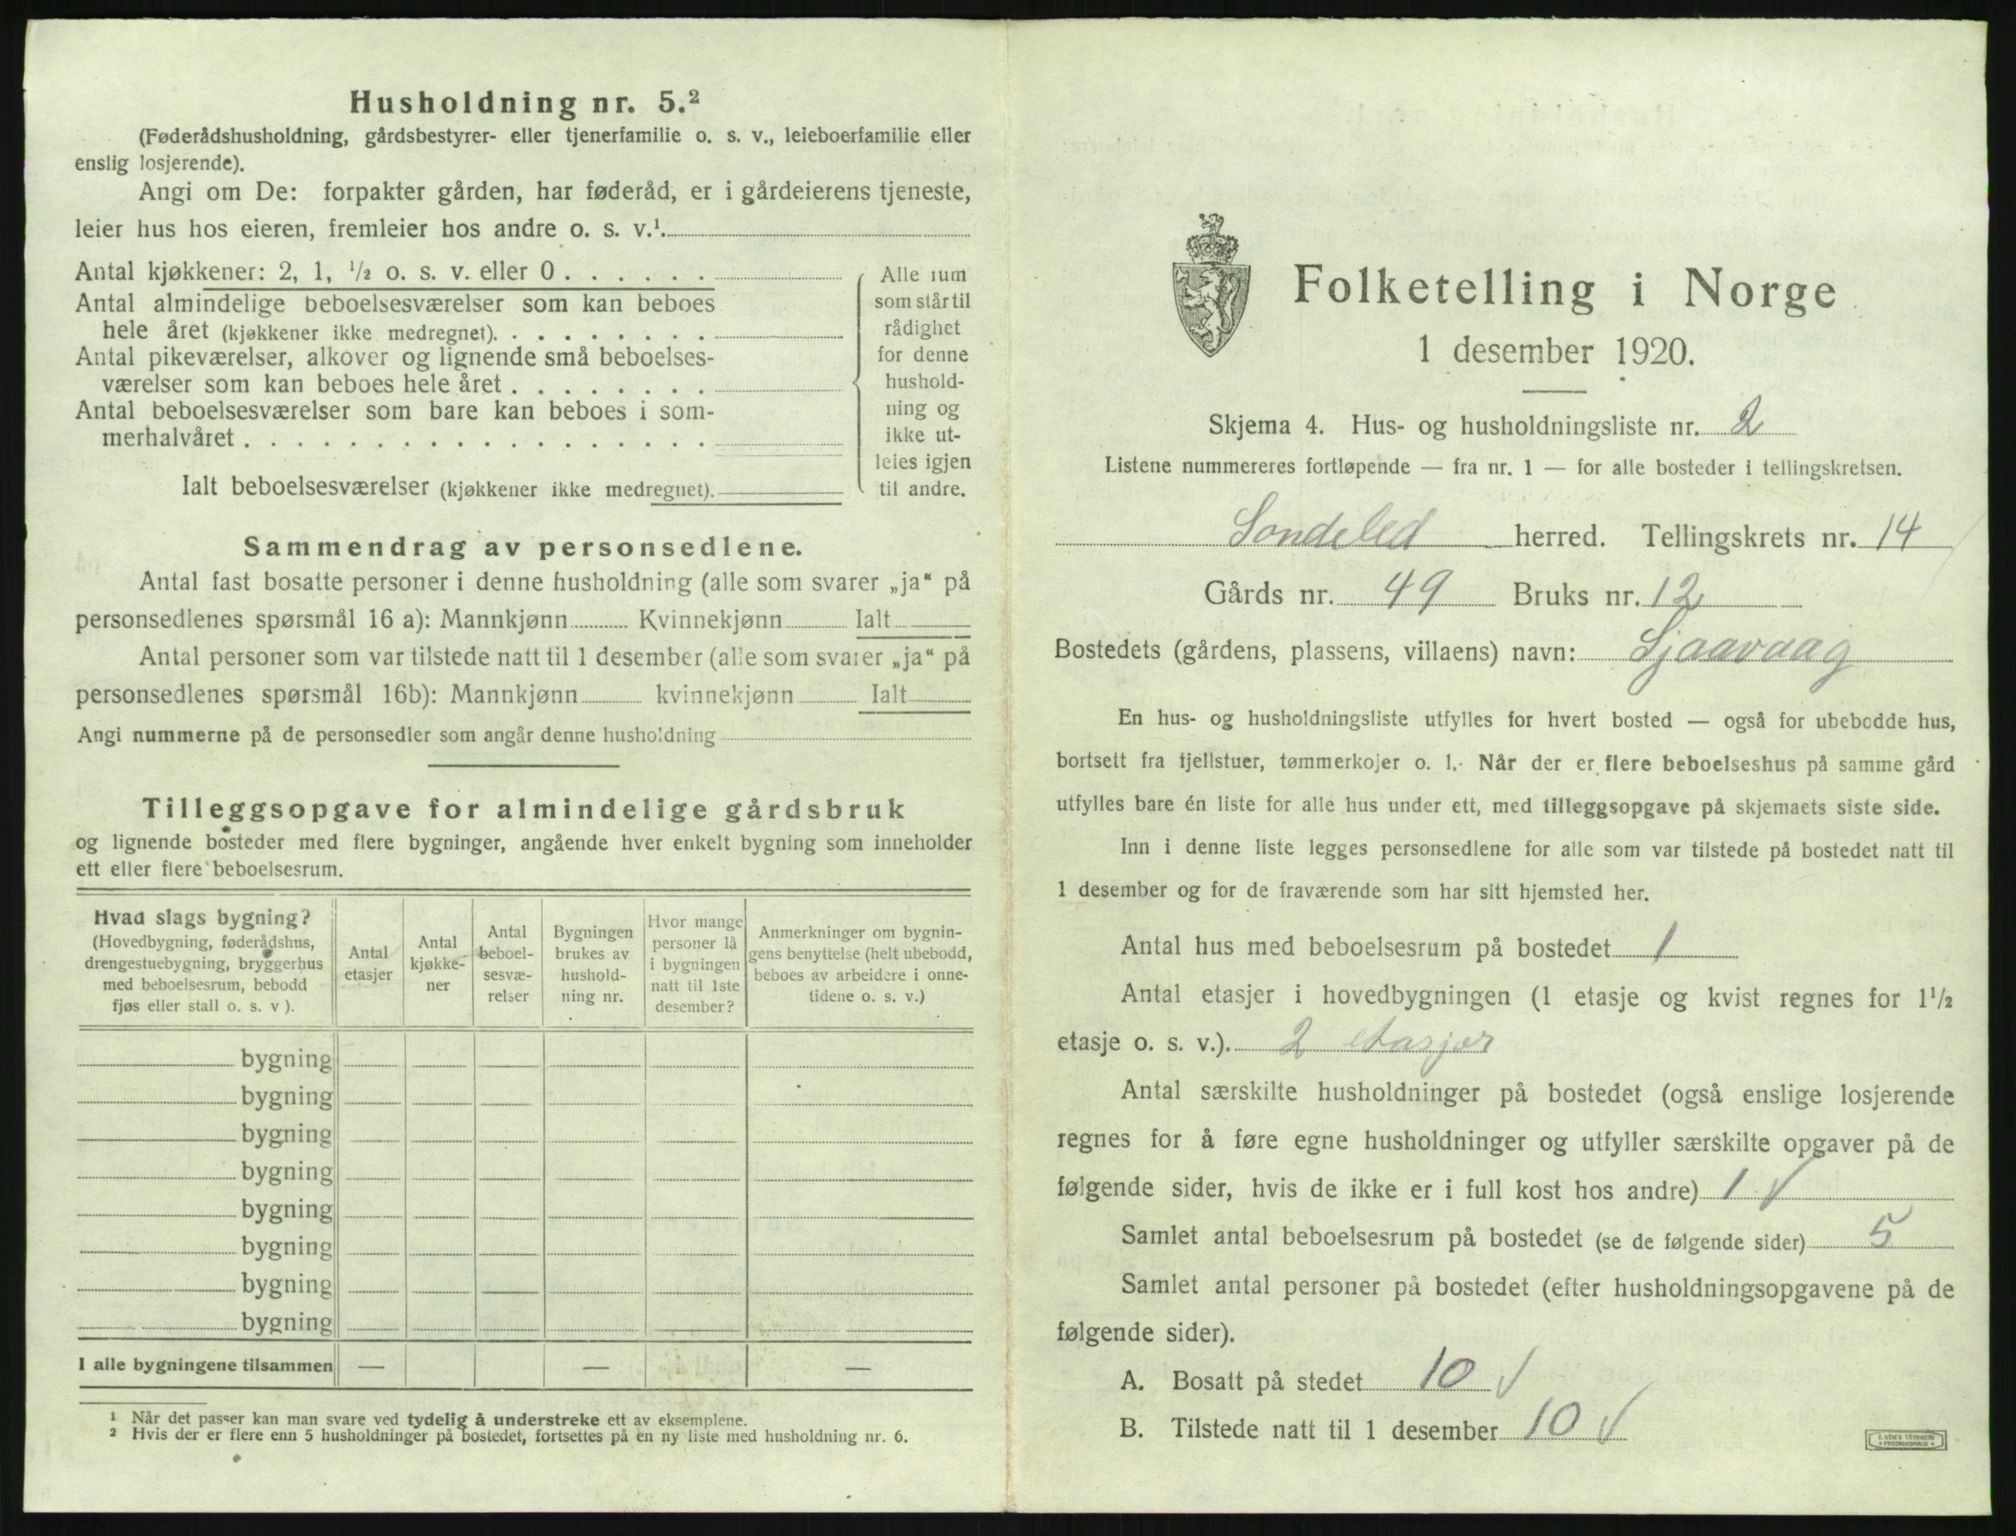 Husholdning nr. 5.²
(Føderådshusholdning, gårdsbestyrer- eller tjenerfamilie o. s. v., leieboerfamilie eller
enslig losjerende).
Angi om De: forpakter gården, har føderåd, er i gårdeierens tjeneste,
leier hus hos eieren, fremleier hos andre o. s. v.¹
Antal kjøkkener: 2, 1, ½ o. s. v. eller 0 . . . . . .
Antal almindelige beboelsesværelser som kan beboes
hele året (kjøkkener ikke medregnet). . . . . . . . .
Antal pikeværelser, alkover og lignende små beboelses-
værelser som kan beboes hele året . . . . . . . .
Antal beboelsesværelser som bare kan beboes i som-
merhalvåret . . . . . . . . . . . . . . . . . .
Alle rum
som står til
rådighet
for denne
hushold-
ning og
ikke ut-
leies igjen
til andre.
Ialt beboelsesværelser (kjøkkener ikke medregnet).
Sammendrag av personsedlene.
Antal fast bosatte personer i denne husholdning (alle som svarer „ja“ på
personsedlenes spørsmål 16 a): Mannkjønn Kvinnekjønn Ialt
Antal personer som var tilstede natt til 1 desember (alle som svarer „ja“ på
personsedlenes spørsmål 16b): Mannkjønn kvinnekjønn Ialt
Angi nummerne på de personsedler som angår denne husholdning
Tilleggsopgave for almindelige gårdsbruk
og lignende bosteder med flere bygninger, angående hver enkelt bygning som inneholder
ett eller flere beboelsesrum.
Hvad slags bygning?
(Hovedbygning, føderådshus,
drengestuebygning, bryggerhus
med beboelsesrum, bebodd
fjøs eller stall o. s. v ).
Antal
etasjer
Antal
kjøkke-
ner
Antal
beboel-
sesvæ-
relser
Bygningen
brukes av
hushold-
ning nr.
Hvor mange
personer lå
i bygningen
natt til 1ste
desember?
Anmerkninger om bygnin-
gens benyttelse (helt ubebodd,
beboes av arbeidere i onne-
tidene o. s. v.)
bygning
bygning
bygning
bygning
bygning
bygning
bygning
bygning
I alle bygningene tilsammen — — —
¹ Når det passer kan man svare ved tydelig å understreke ett av eksemplene.
² Hvis der er flere enn 5 husholdninger på bostedet, fortsettes på en ny liste med husholdning nr. 6.
Folketelling i Norge
1 desember 1920.
Skjema 4. Hus- og husholdningsliste nr. 2
Listene nummereres fortløpende — fra nr. 1 — for alle bosteder i tellingskretsen.
Søndeled herred. Tellingskrets nr. 14
Gårds nr. 49 Bruks nr. 12
Bostedets (gårdens, plassens, villaens) navn: Sjaavaag
En hus- og husholdningsliste utfylles for hvert bosted — også for ubebodde hus,
bortsett fra fjellstuer, tømmerkojer o. l. Når der er flere beboelseshus på samme gård
utfylles bare én liste for alle hus under ett, med tilleggsopgave på skjemaets siste side.
Inn i denne liste legges personsedlene for alle som var tilstede på bostedet natt til
1 desember og for de fraværende som har sitt hjemsted her.
Antal hus med beboelsesrum på bostedet 1
Antal etasjer i hovedbygningen (1 etasje og kvist regnes for 1½
etasje o. s. v.). 2 etasjer
Antal særskilte husholdninger på bostedet (også enslige losjerende
regnes for å føre egne husholdninger og utfyller særskilte opgaver på de
følgende sider, hvis de ikke er i full kost hos andre) 1 √
Samlet antal beboelsesrum på bostedet (se de følgende sider) 5
Samlet antal personer på bostedet (efter husholdningsopgavene på de
følgende sider).
A. Bosatt på stedet 10 √
B. Tilstede natt til 1 desember 10 √